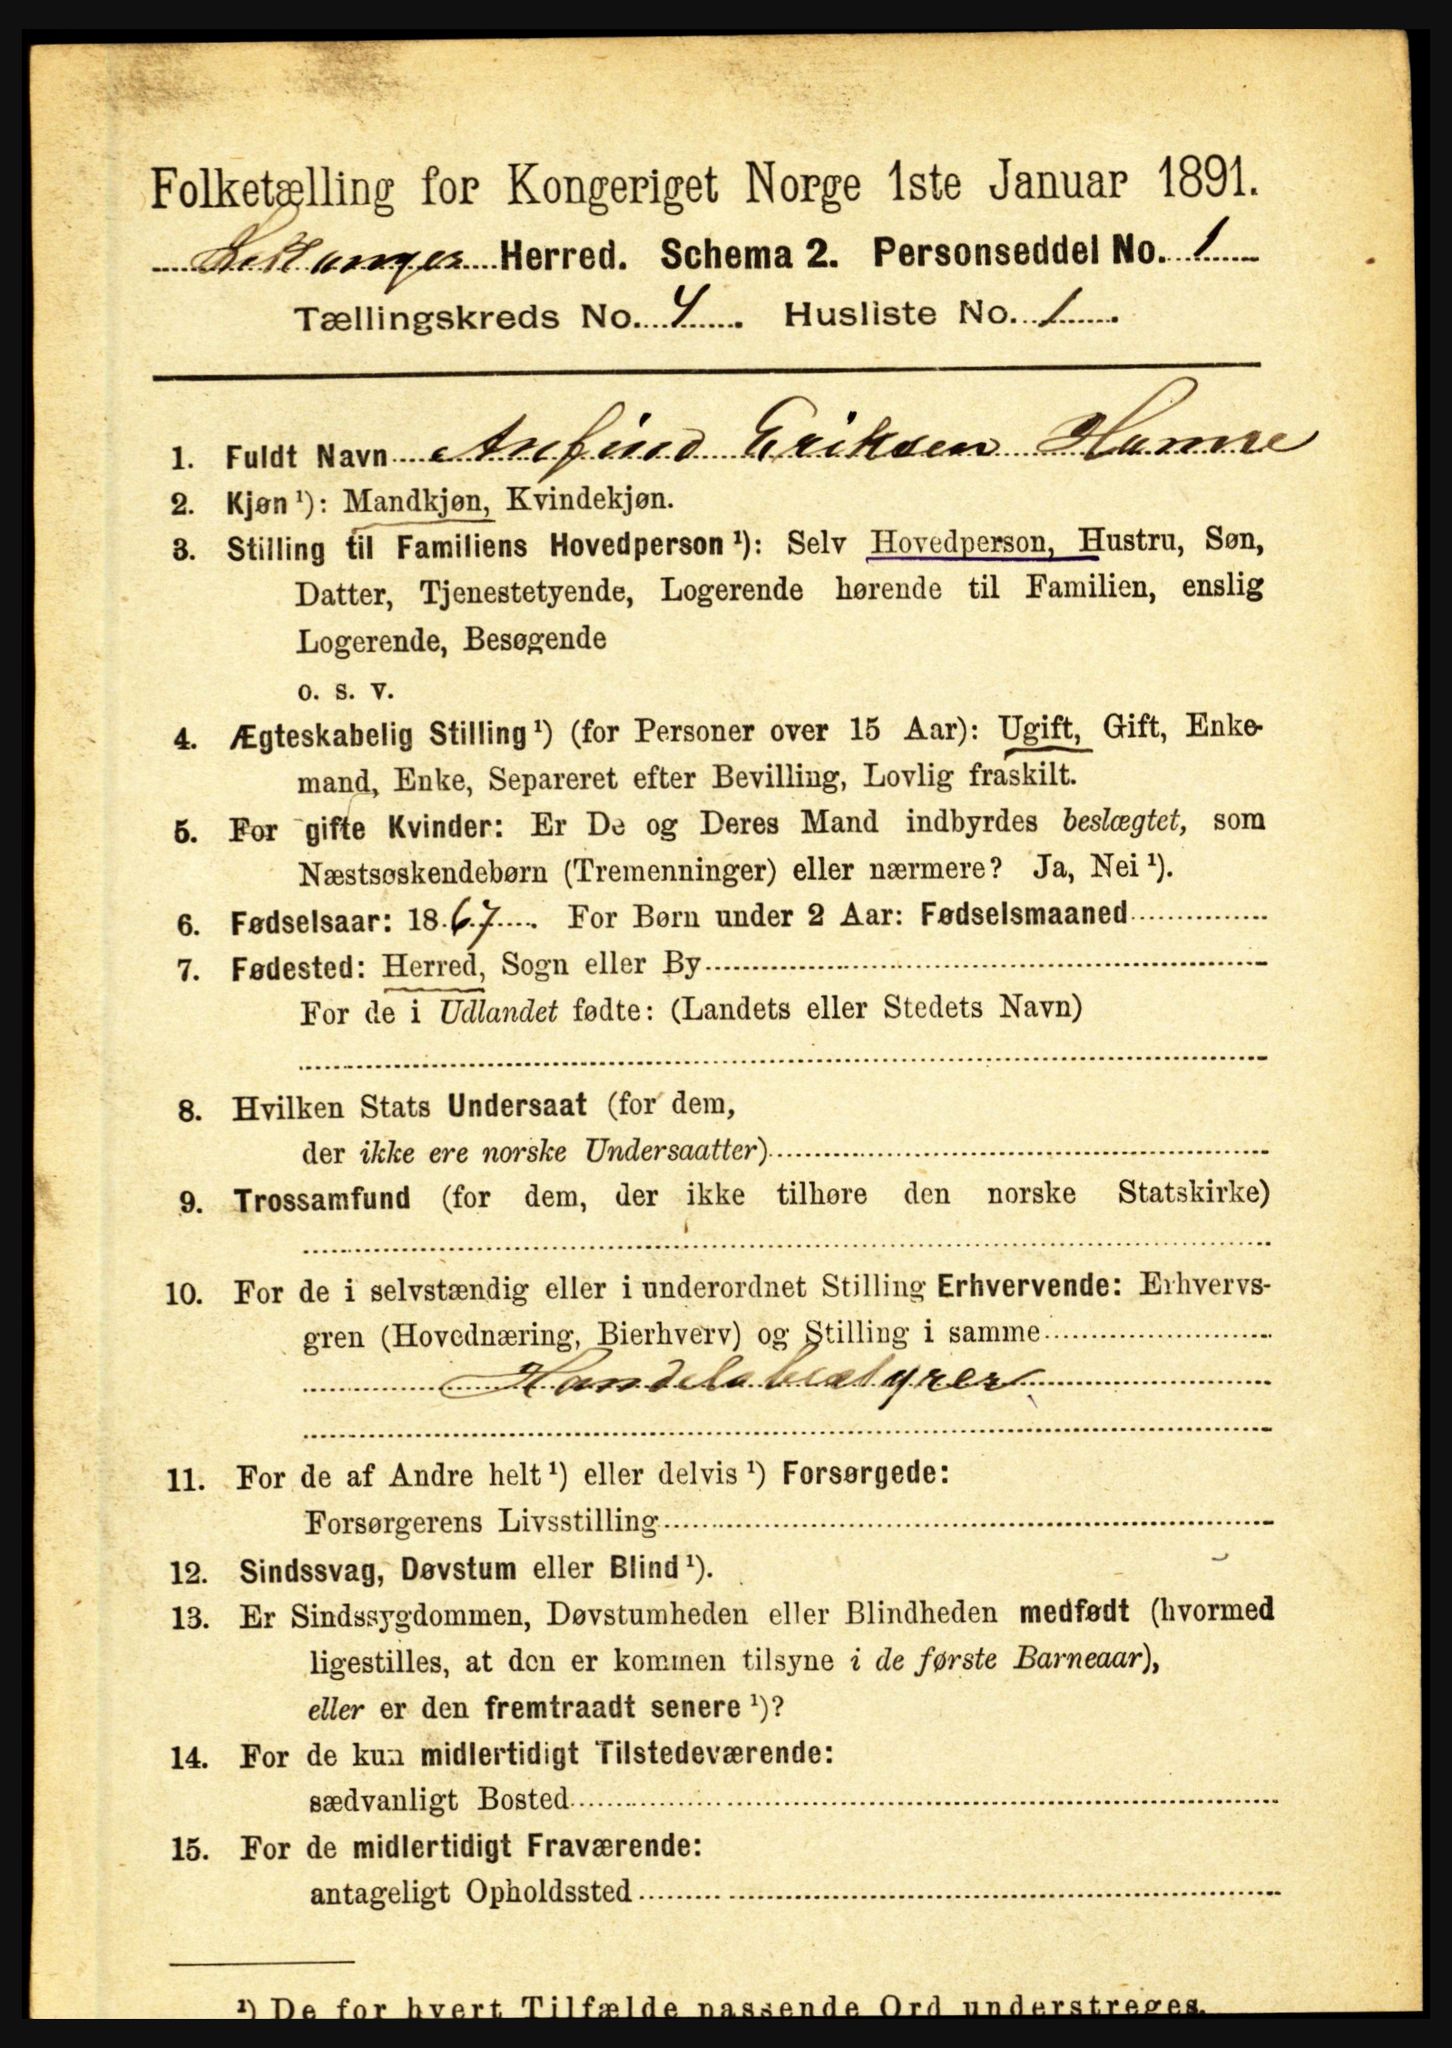 Folketælling for Kongeriget Norge 1ste Januar 1891.
Leikanger Herred. Schema 2. Personseddel No. 1
Tællingskreds No. 4. Husliste No. 1.
1. Fuldt Navn Anfind Eriksen Hamre
2. Kjøn ¹): Mandkjøn, Kvindekjøn.
3. Stilling til Familiens Hovedperson ¹): Selv Hovedperson, Hustru, Søn,
Datter, Tjenestetyende, Logerende hørende til Familien, enslig
Logerende, Besøgende
o. s. v.
4. Ægteskabelig Stilling ¹) (for Personer over 15 Aar): Ugift, Gift, Enke-
mand, Enke, Separeret efter Bevilling, Lovlig fraskilt.
5. For gifte Kvinder: Er De og Deres Mand indbyrdes beslægtet, som
Næstsøskendebørn (Tremenninger) eller nærmere? Ja, Nei ¹).
6. Fødselsaar: 1867. For Børn under 2 Aar: Fødselsmaaned
7. Fødested: Herred, Sogn eller By
For de i Udlandet fødte: (Landets eller Stedets Navn)
8. Hvilken Stats Undersaat (for dem,
der ikke ere norske Undersaatter)
9. Trossamfund (for dem, der ikke tilhøre den norske Statskirke)
10. For de i selvstændig eller i underordnet Stilling Erhvervende: Erhvervs-
gren (Hovednæring, Bierhverv) og Stilling i samme
Handelsbestyrer
11. For de af Andre helt ¹) eller delvis ¹) Forsørgede:
Forsørgerens Livsstilling
12. Sindssvag, Døvstum eller Blind ¹).
13. Er Sindssygdommen, Døvstumheden eller Blindheden medfødt (hvormed
ligestilles, at den er kommen tilsyne i de første Barneaar),
eller er den fremtraadt senere ¹)?
14. For de kun midlertidigt Tilstedeværende:
sædvanligt Bosted
15. For de midlertidigt Fraværende:
antageligt Opholdssted
¹) De for hvert Tilfælde passende Ord understreges.